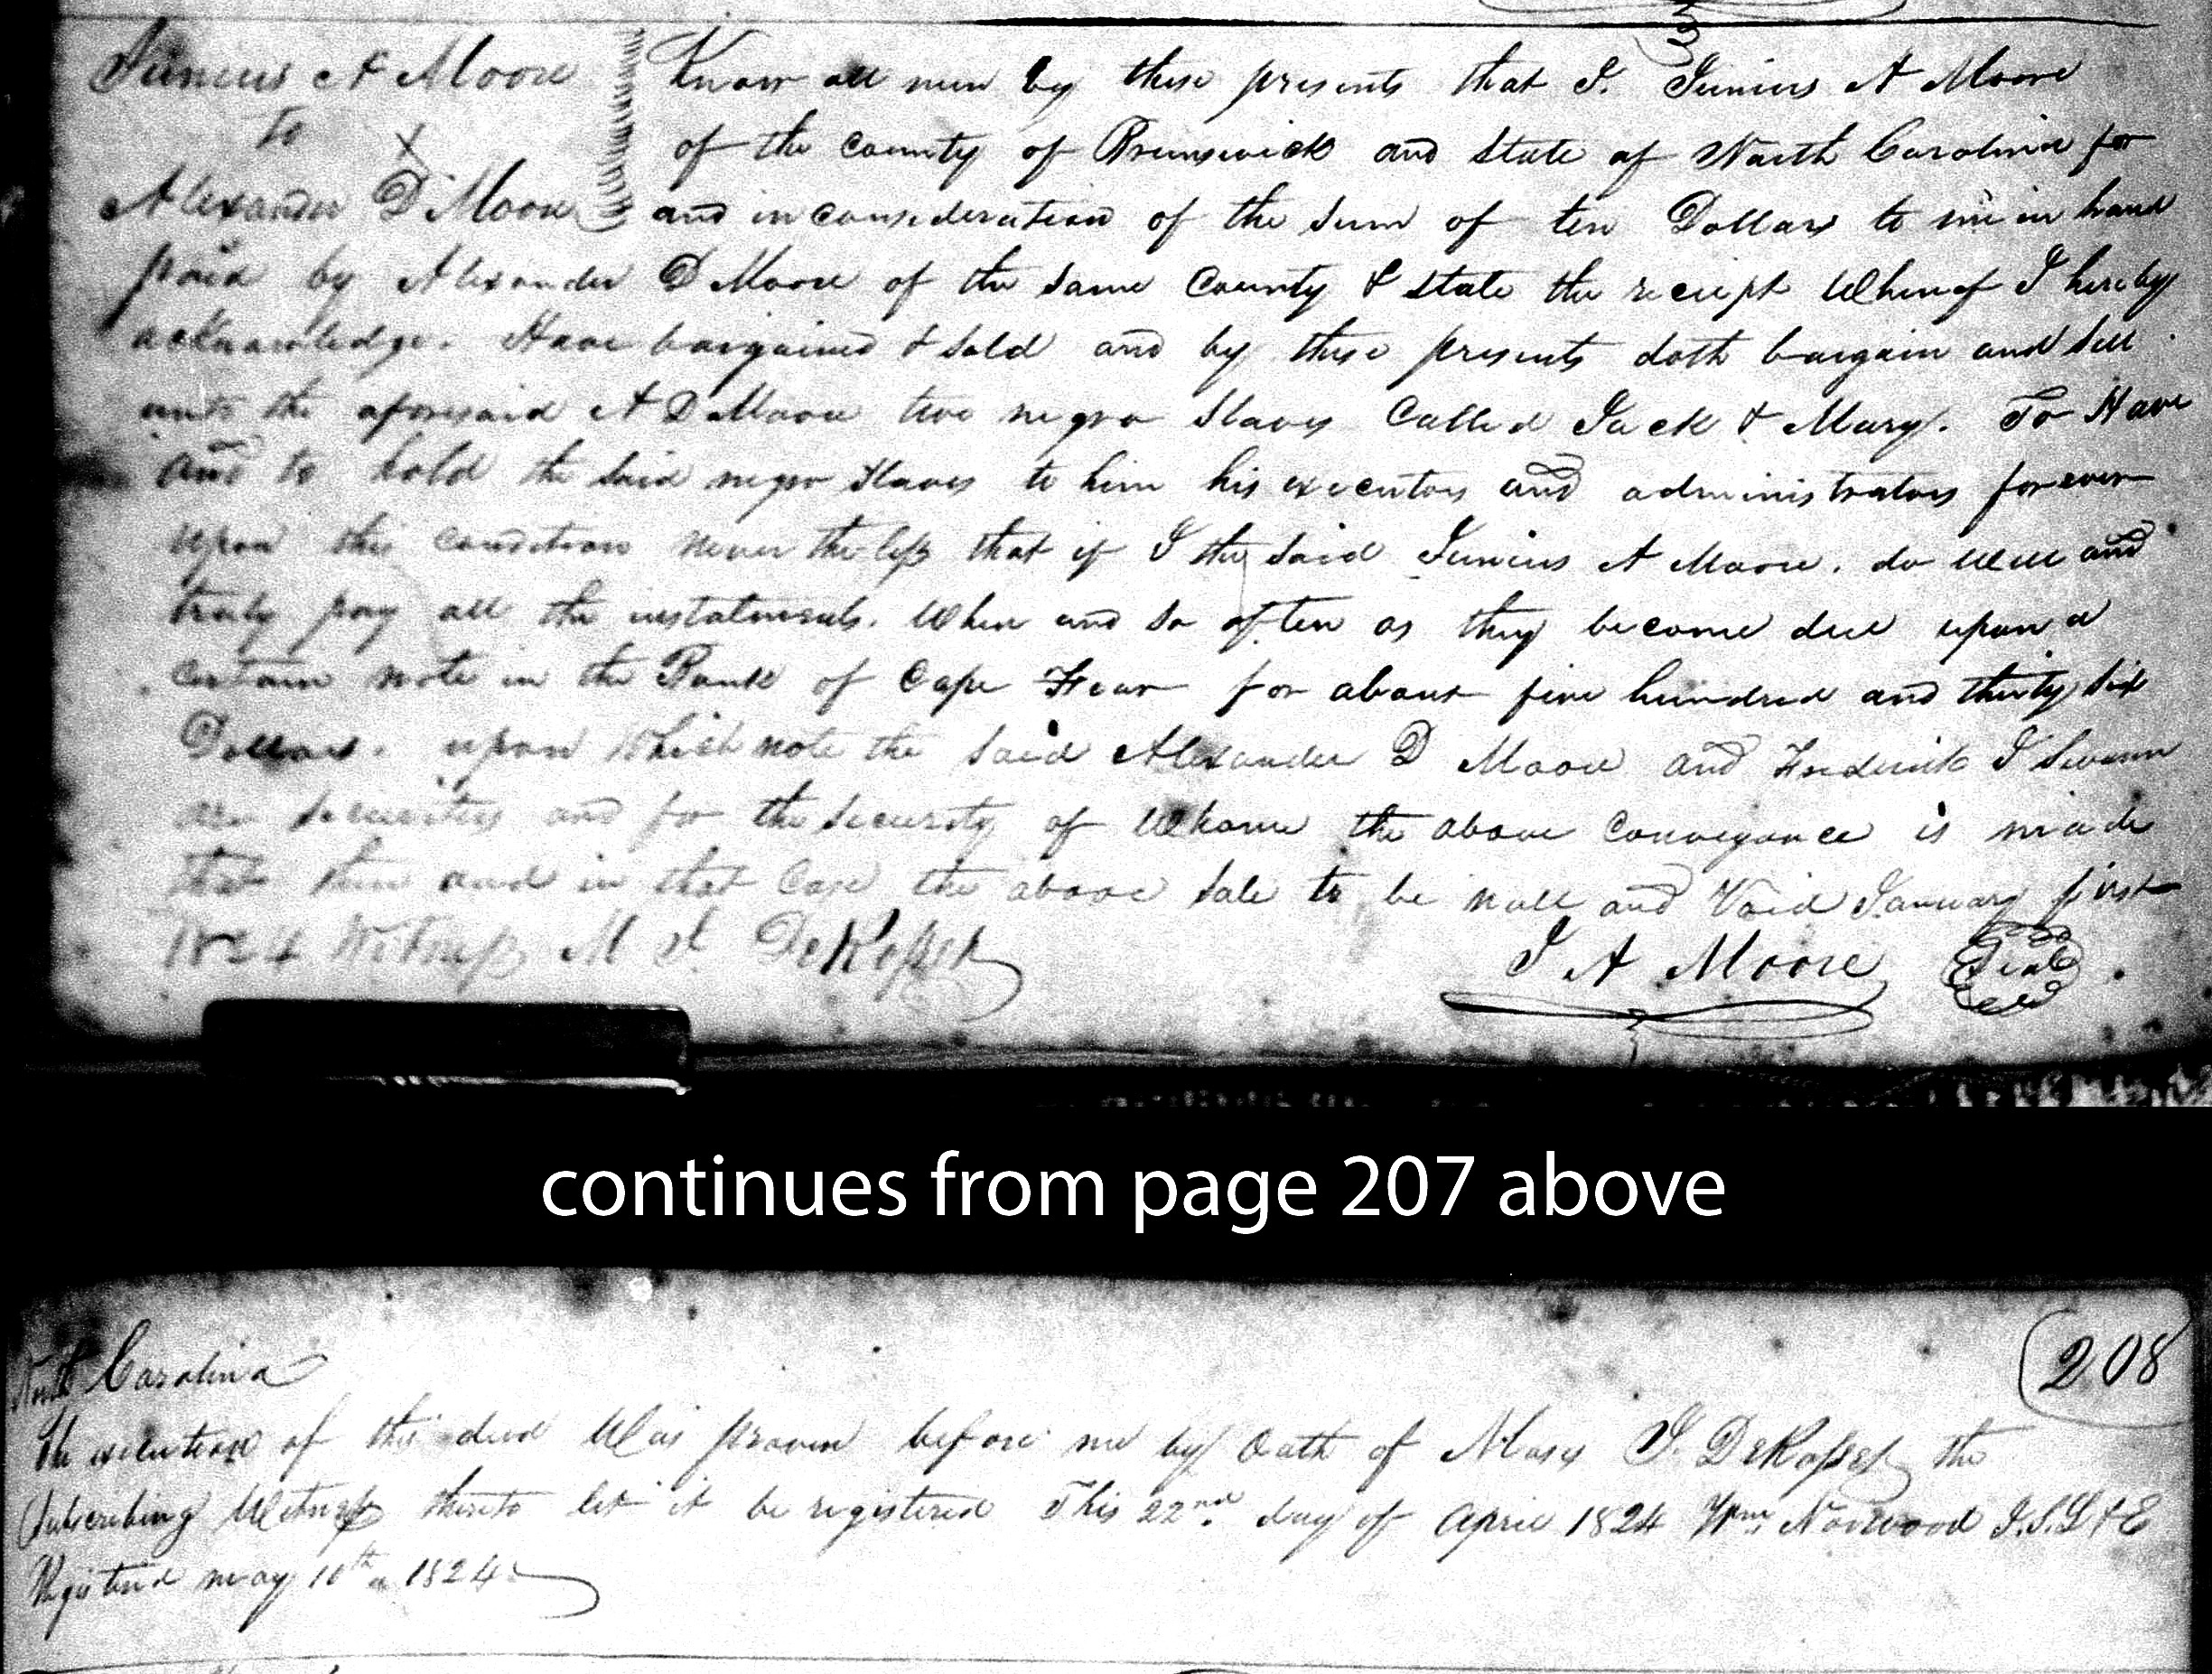 Junius A Moore
to
Alexander D Moore
Know all men by these presents that I. Junius A Moore
of the County of Brunswick and State of North Carolina for
and in consideration of the Sum of ten Dollars to me in hand
paid by Alexander D Moore of the same County & state the reciept Whereof I hereby
acknowledge. Have bargained & Sold and by these presents doth bargain and Sell
unto the aforesaid A D Moore two negro Slaves Called Jack & Mary. To Have
and to hold the said negro Slaves to him his executors and administrators forever
upon this condition never the less that if I the said Junius A Moore. do Well and
truly pay all the instalments. When and so often as they become due upon a
certain note in the Bank of Cape Fear for about five hundred and thirty six
Dollars. upon Which note the Said Alexander D Moore and Frederick J Swann
are securities and for the Security of Whome the above Conveyance is made
that then and in that Case the above Sale to be null and Void January first
1824 Witness M J DeRosset
J A Moore Seal
continues from page 207 above
208
North Carolina
The execution of this deed Was proven before me by Oath of Moses J. DeRosset the
Subscribing Witness thereto let it be registered This 22nd day of April 1824 Wm Norwood J.S.L & E
Registered may 10th 1824